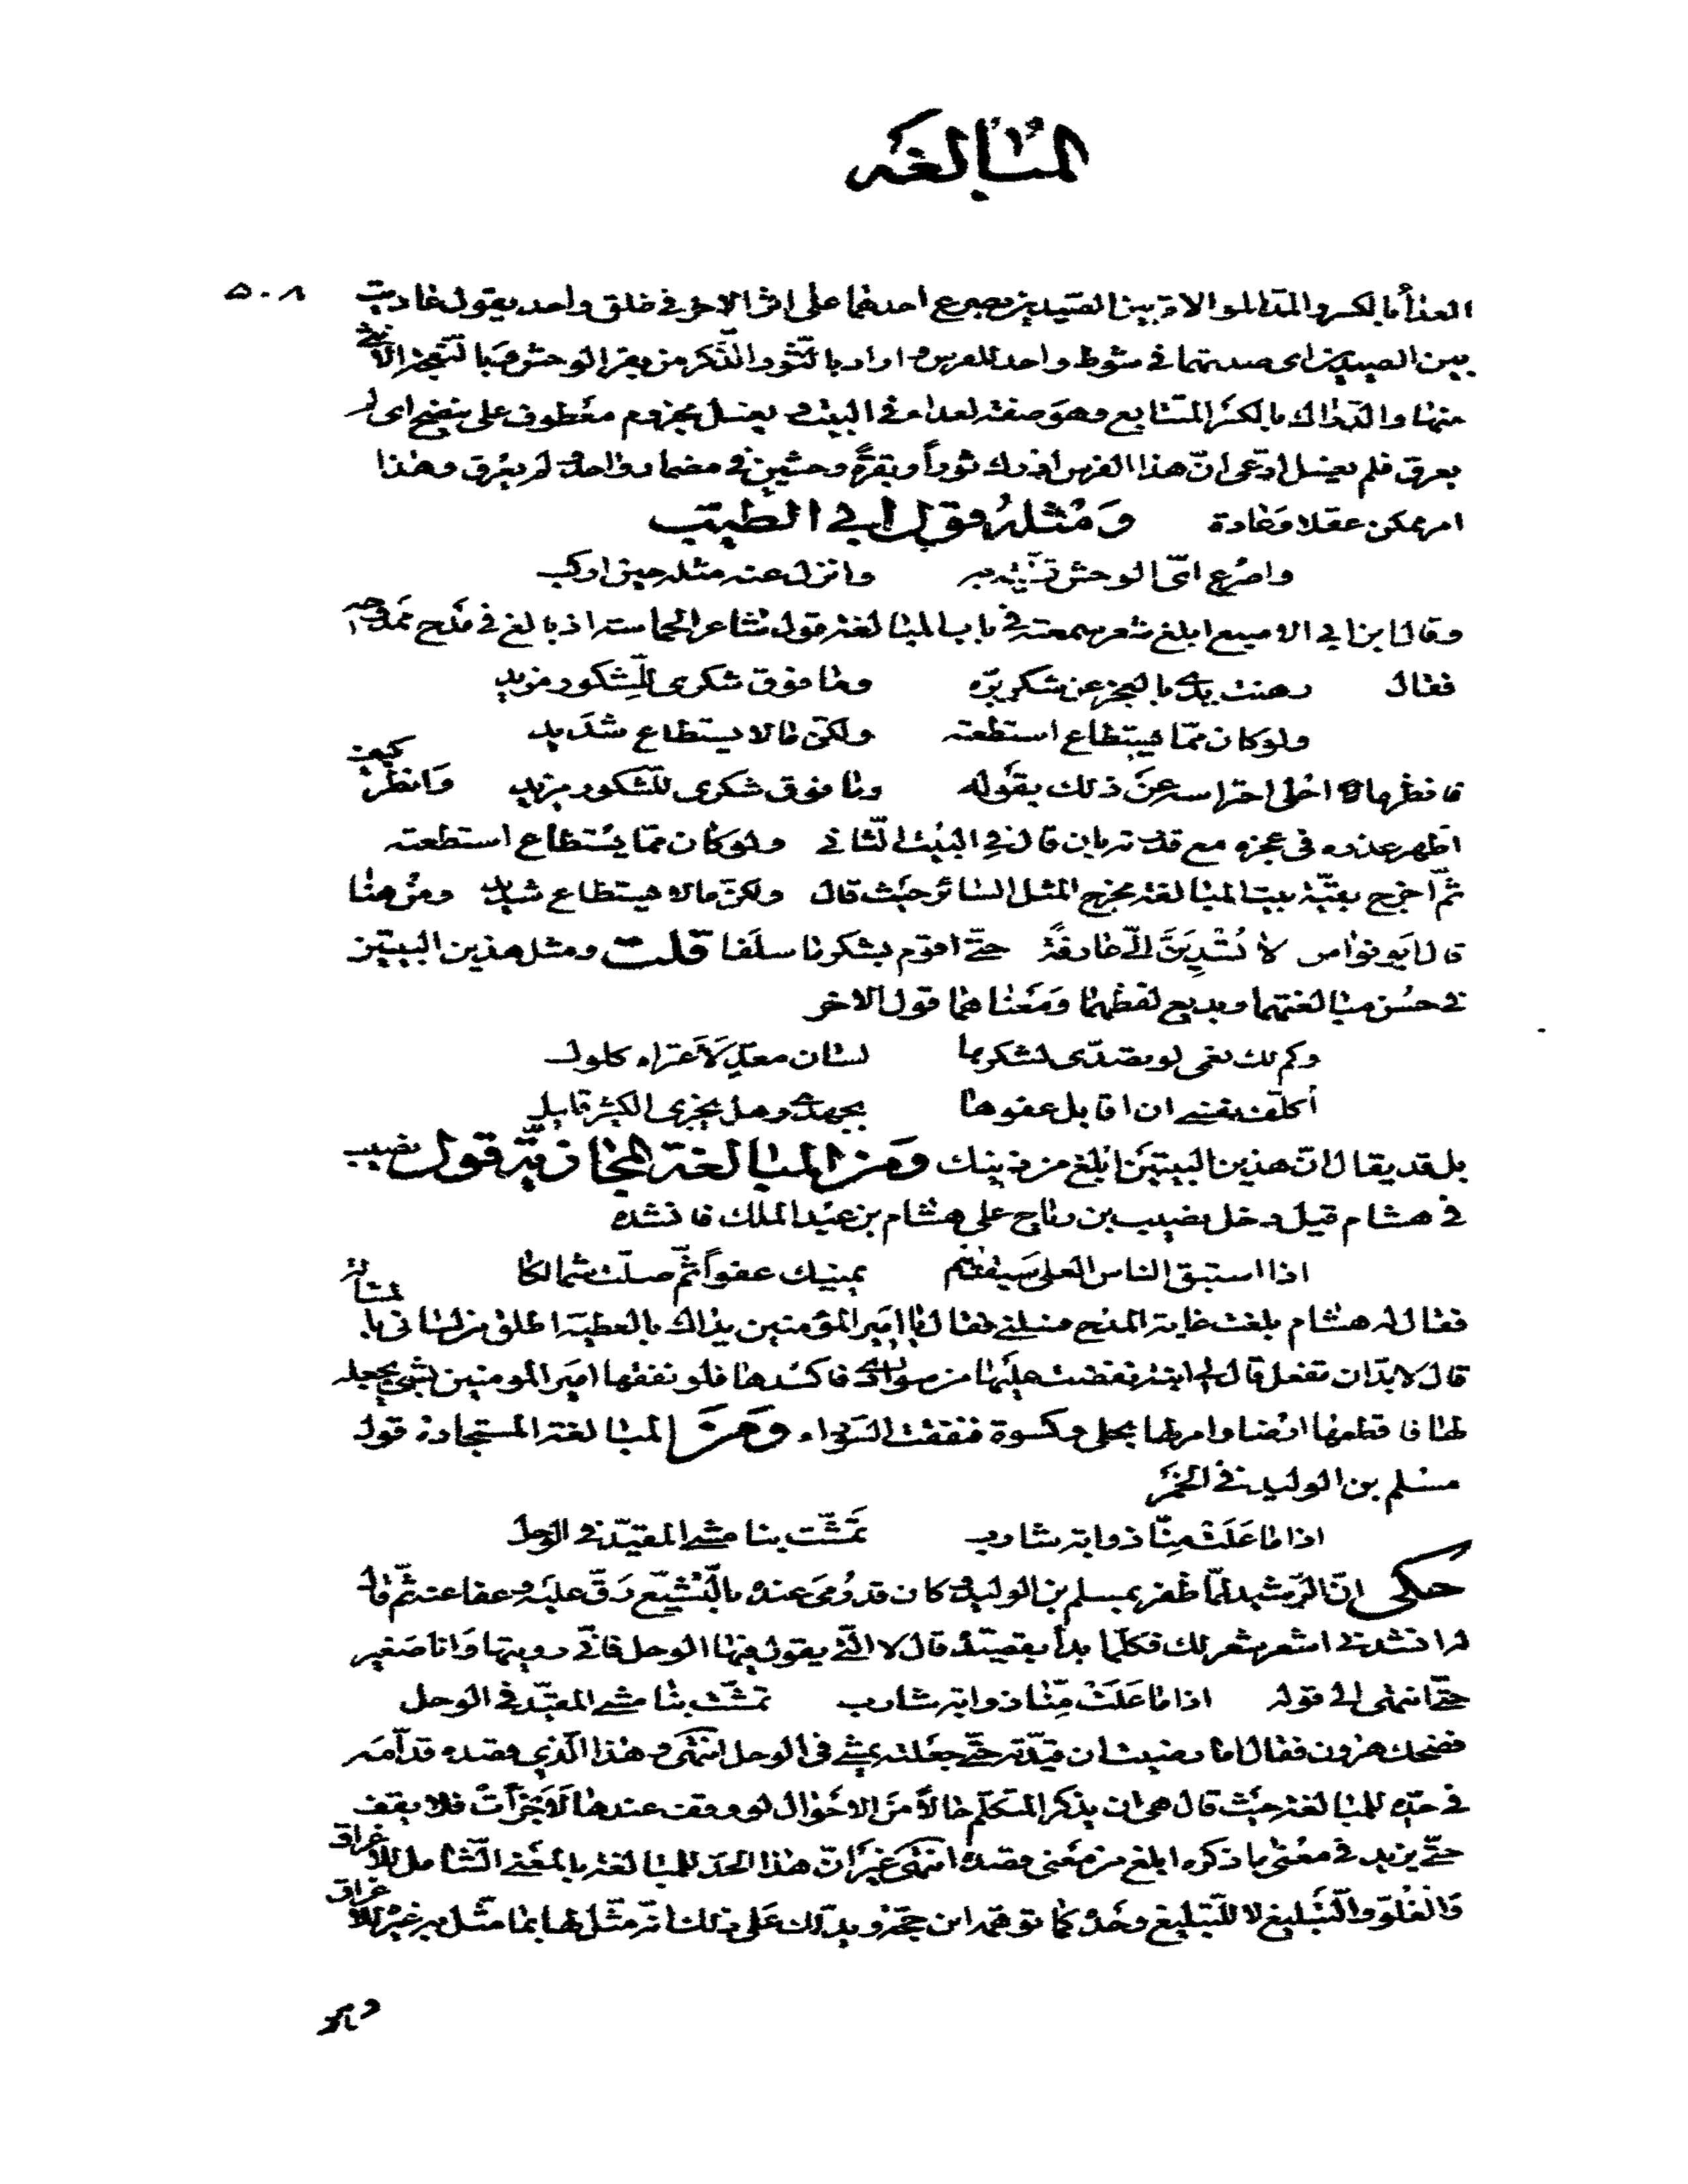 المبالغه
٥٠٨
العداء بالكسر والمد الموالاة بين الصيدين يصرع احدهما على اثر الاخر في طلق واحد يقول عاديت
بين الصيدين اى صدتهما في شوط واحد للفرس و اراد بالثور الذكر من بقر الوحش وبالنعجة الانثى
منها والدراك بالكسر المتتابع وهو صفة لعداء في البيت و يغسل مجزوم معطوف على ينضح اى لم
يعرق فلم يغسل ادعى ان هذا الفرس ادرك ثوراً وبقرة وحشيين في مضمار واحد و لم يعرق وهذا
امر ممكن عقلا وعادة ومثله قول ابي الطيب
واصرع اىّ الوحش قفّيته به وانزل عنه مثله حين اركب
وقال ابن ابي الاصبع ابلغ شعر سمعته في باب المبالغة قول شاعر الحماسة اذ بالغ في مدح ممدوحه
فقال رهنت يدى بالعجز عن شكر برّه وما فوق شكرى للشكور مزيد
ولو كان ممّا يستطاع استطعته ولكنّ مالا يستطاع شديد
فانظر ما احلى احتراسه عن ذلك بقوله وما فوق شكرى للشكور مزيد وانظر كيف
اظهر عذره فى عجزه مع قدرته بان قال في البيت الثاني ولو كان ممّا يستطاع استطعته
ثمّ اخرج بقيّة بيت المبالغة مخرج المثل السائر حيث قال ولكنّ مالا يستطاع شديد ومن هنا
قال ابو نواس لا تُسْدِيَنَّ الىّ عارفةً حتّى اقوم بشكر ما سلفا قلت ومثل هذين البيتين
في حسن مبالغتهما وبديع لفظهما ومعناهما قول الاخر
وكم لك نعمى لو تصدّى لشكرها لسان معدّ لاعتراه كلول
أكلّف نفسي ان اقابل عفوها بجهدى وهل يجزى الكثير قليل
بل قد يقال انّ هذين البيتين ابلغ من ذينك ومن المبالغة المجازية قول نصيب
في هشام قيل دخل نصيب بن رباح على هشام بن عبد الملك فانشده
اذا استبق الناس العلى سبقتهم يمينك عفواً ثمّ صلّت شمالكا
فقال له هشام بلغت غاية المدح فسلني فقال يا امير المؤمنين يداك بالعطية اطلق من لسانى بالمسألة
قال لا بدّ ان تفعل قال لي ابنة نفضت عليها من سوادى فاكسدها فلو نفقها امير المومنين بشئ يجعله
لها فاقطعها ارضا وامر لها بحلى وكسوة فنفقت السوداء ومن المبالغة المستجادة قول
مسلم بن الوليد في الخمر
اذا ما عَلَتْ مِنّا ذوابة شارب تمشّت بنا مشي المقيّد في الوحل
حكى انّ الرشيد لمّا ظفر بمسلم بن الوليد و كان قد رُمي عنده بالتشيّع رقّ عليه و عفا عنه ثمّ قال
له انشدني اشعر شعر لك فكلّما بدأ بقصيدة قال لا الّتي يقول فيها الوحل فانّي رويتها وانا صغير
حتّى انتهى الى قوله اذا ما عَلَتْ مِنّا ذوابة شارب تمشّت بنا مشي المقيّد في الوحل
فضحك هرون فقال اما رضيت ان قيّدته حتّى جعلته يمشي في الوحل انتهى وهذا الّذي قصده قدامه
في حدّه للمبالغة حيث قال هي ان يذكر المتكلّم حالاً من الاحوال لو وقف عندها لأجزأت فلا يقف
حتّى يزيد في معنى ما ذكره ابلغ من معنى قصده انتهى غير انّ هذا الحدّ للمبالغة بالمعنى الشامل للاغراق
والغلوّ والتبليغ لا للتبليغ وحده كما توهّمه ابن حجّة ويدلّك على ذلك انّه مثّل لها بما مثّل به غيره للاغراق